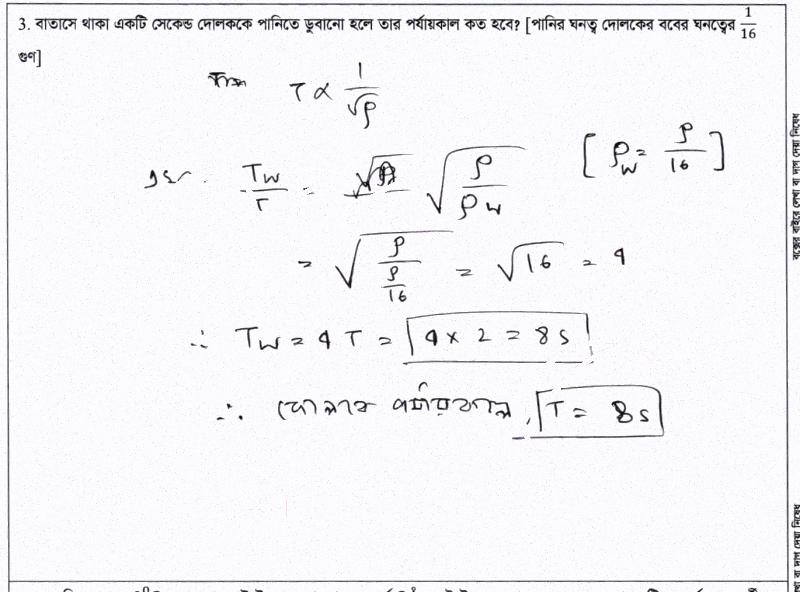 3. বাতাসে থাকা একটি সেকেন্ড দোলককে পানিতে ডুবানো হলে তার পর্যায়কাল কত হবে? [পানির ঘনত্ব দোলকের ববের ঘনত্বের 1/16
গুণ]
T ∝ 1/√ρ
T_W/T = √(ρ/ρ_W) [ρ_W = ρ/16]
= √(ρ/(ρ/16)) = √16 = 4
∴ T_W = 4 T = 4 × 2 = 8 s
∴ দোলকের পর্যায়কাল, T = 8 s
বক্সের বাইরে লেখা বা দাগ দেয়া নিষেধ